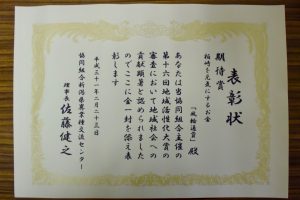 表彰状
期待賞
柏崎を元気にするお金
「風輪通貨」殿
あなたは当協同組合主催の
第十六回地域活性化大賞の
審査において地域社会への
貢献顕著と認められました
のでここに金一封を添え表
彰します
平成三十一年二月二十三日
協同組合新潟県異業種交流センター
理事長 佐藤健之